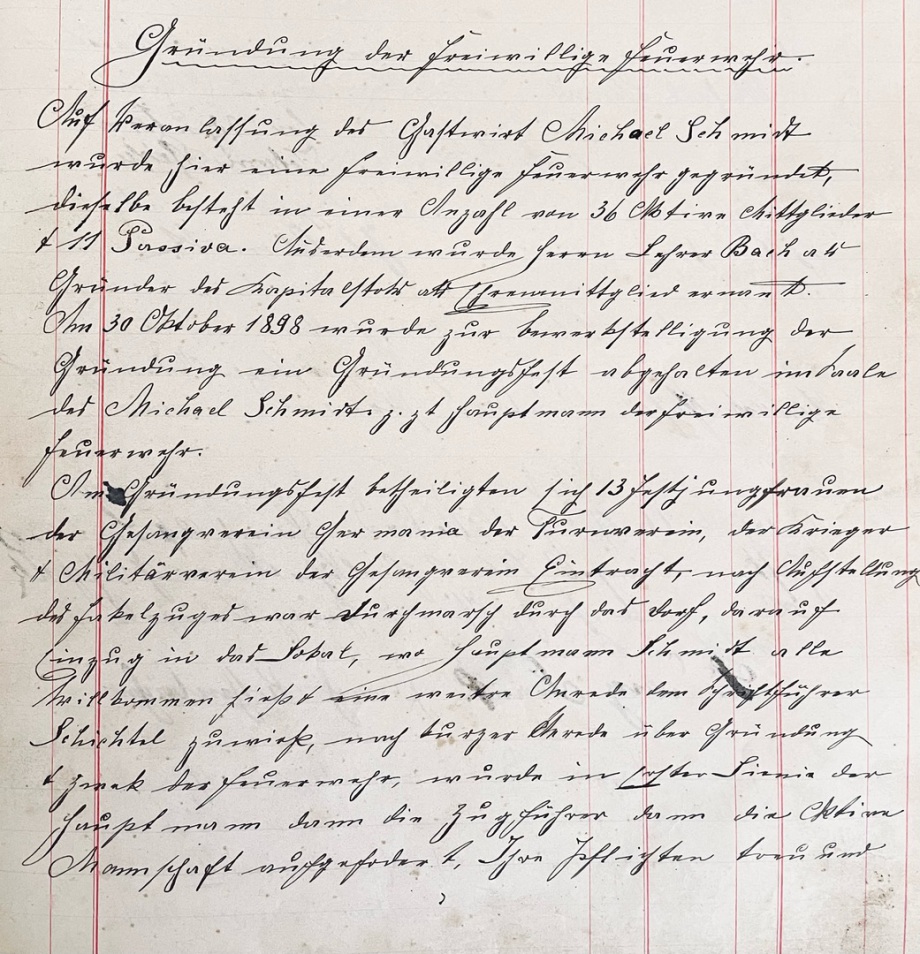 Gründung der Freiwillige Feuerwehr.
Auf Veranlassung des Gastwirt Michael Schmidt
wurde hier eine Freiwillige Feuerwehr gegründet,
dieselbe besteht in einer Anzahl von 36 Aktive Mittglieder
& 11 Passiva. Außerdem wurde Herrn Lehrer Bach als
Gründer des Kapitalstoks als Ehrenmittglied ernant.
Am 30 Oktober 1898 wurde zur bewerkstelligung der
Gründung ein Gründungsfest abgehalten im Saale
des Michael Schmidt z. zt Hauptmann der Freiwillige
Feuerwehr.
Am Gründungsfest betheiligten sich 13 Festjungfrauen
der Gesangverein Germania der Turnverein, der Krieger
& Militärverein der Gesangverein Eintracht, nach Aufstellung
des Fakelzuges war Durchmarsch durch das Dorf, darauf
Einzug in das Lokal, wo Hauptmann Schmidt alle
Willkommen hieß & eine weitre Anrede dem Schriftführer
Schichtel zuwieß, nach kurzer Anrede über Gründung
& Zwek der Feuerwehr, wurde in erster Linie der
Hauptmann dann die Zugführer dann die Aktive
Mannschaft aufgefodert, Ihre Pflichten treu und